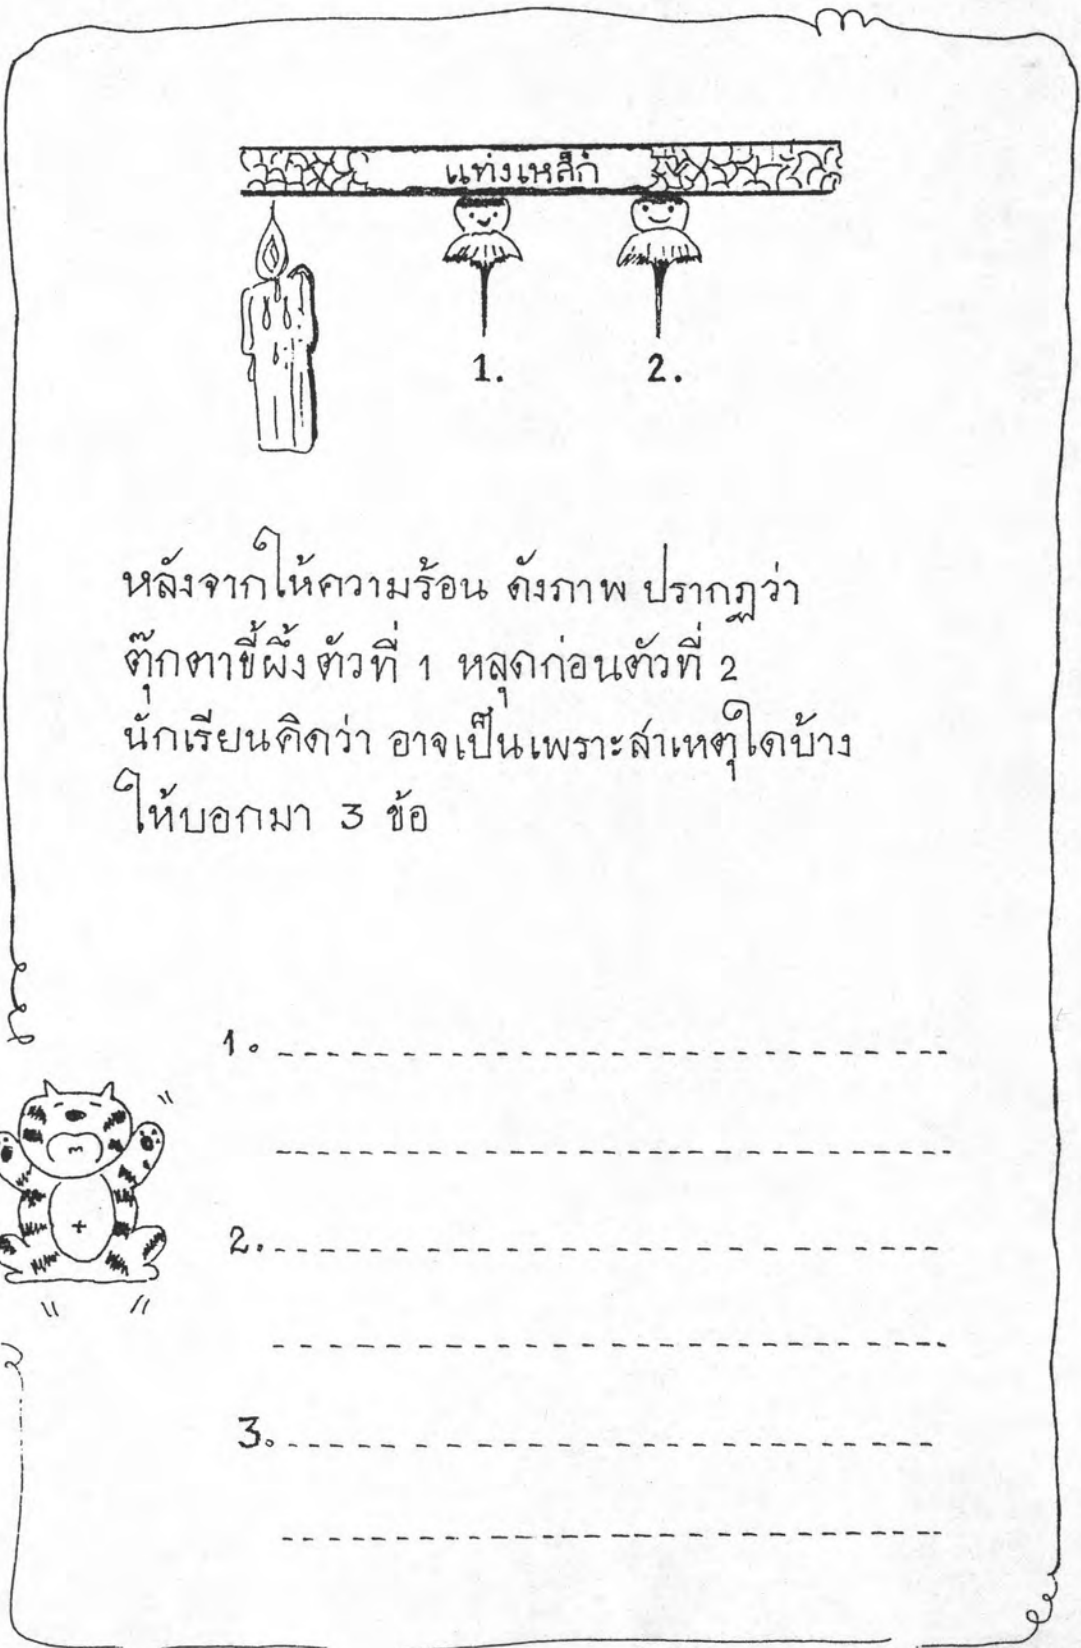 แท่งเหล็ก
1. 2.
หลังจากให้ความร้อน ดังภาพ ปรากฏว่า
ตุ๊กตาขี้ผึ้งตัวที่ 1 หลุดก่อนตัวที่ 2
นักเรียนคิดว่า อาจเป็นเพราะสาเหตุใดบ้าง
ให้บอกมา 3 ข้อ
1.
2.
3.